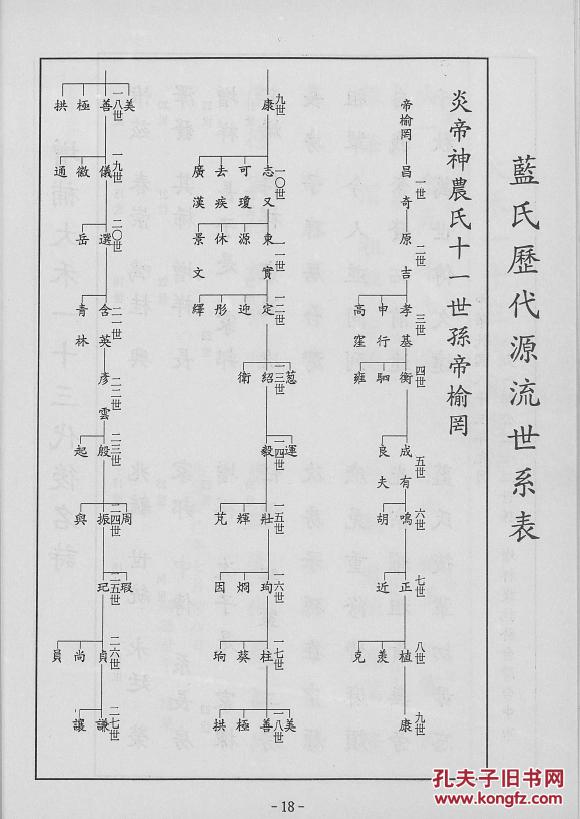 藍氏歷代源流世系表
炎帝神農氏十一世孫帝榆罔
帝榆罔
昌奇 一世
原吉 二世
孝基 申行 高窪 三世
衡 駟 雍 四世
成有 良夫 五世
鳴 胡 六世
正 近 七世
植 羨 克 八世
康 九世
康 九世
志又 可瓊 去疾 廣漢 一〇世
東實 源 休 景文 一一世
定 迎 彤 繹 一二世
葱 紹 衛 一三世
運 毅 一四世
壯 輝 芃 一五世
珣 烱 因 一六世
柱 葵 珦 一七世
美 善 極 拱 一八世
美 善 極 拱 一八世
儀 徽 通 一九世
選 岳 二〇世
含英 青林 二一世
彥雲 二二世
殷 起 二三世
周 振 與 二四世
瑕 玘 二五世
貞 尚 員 二六世
謙 讓 二七世
- 18 -
孔夫子旧书网
www.kongfz.com